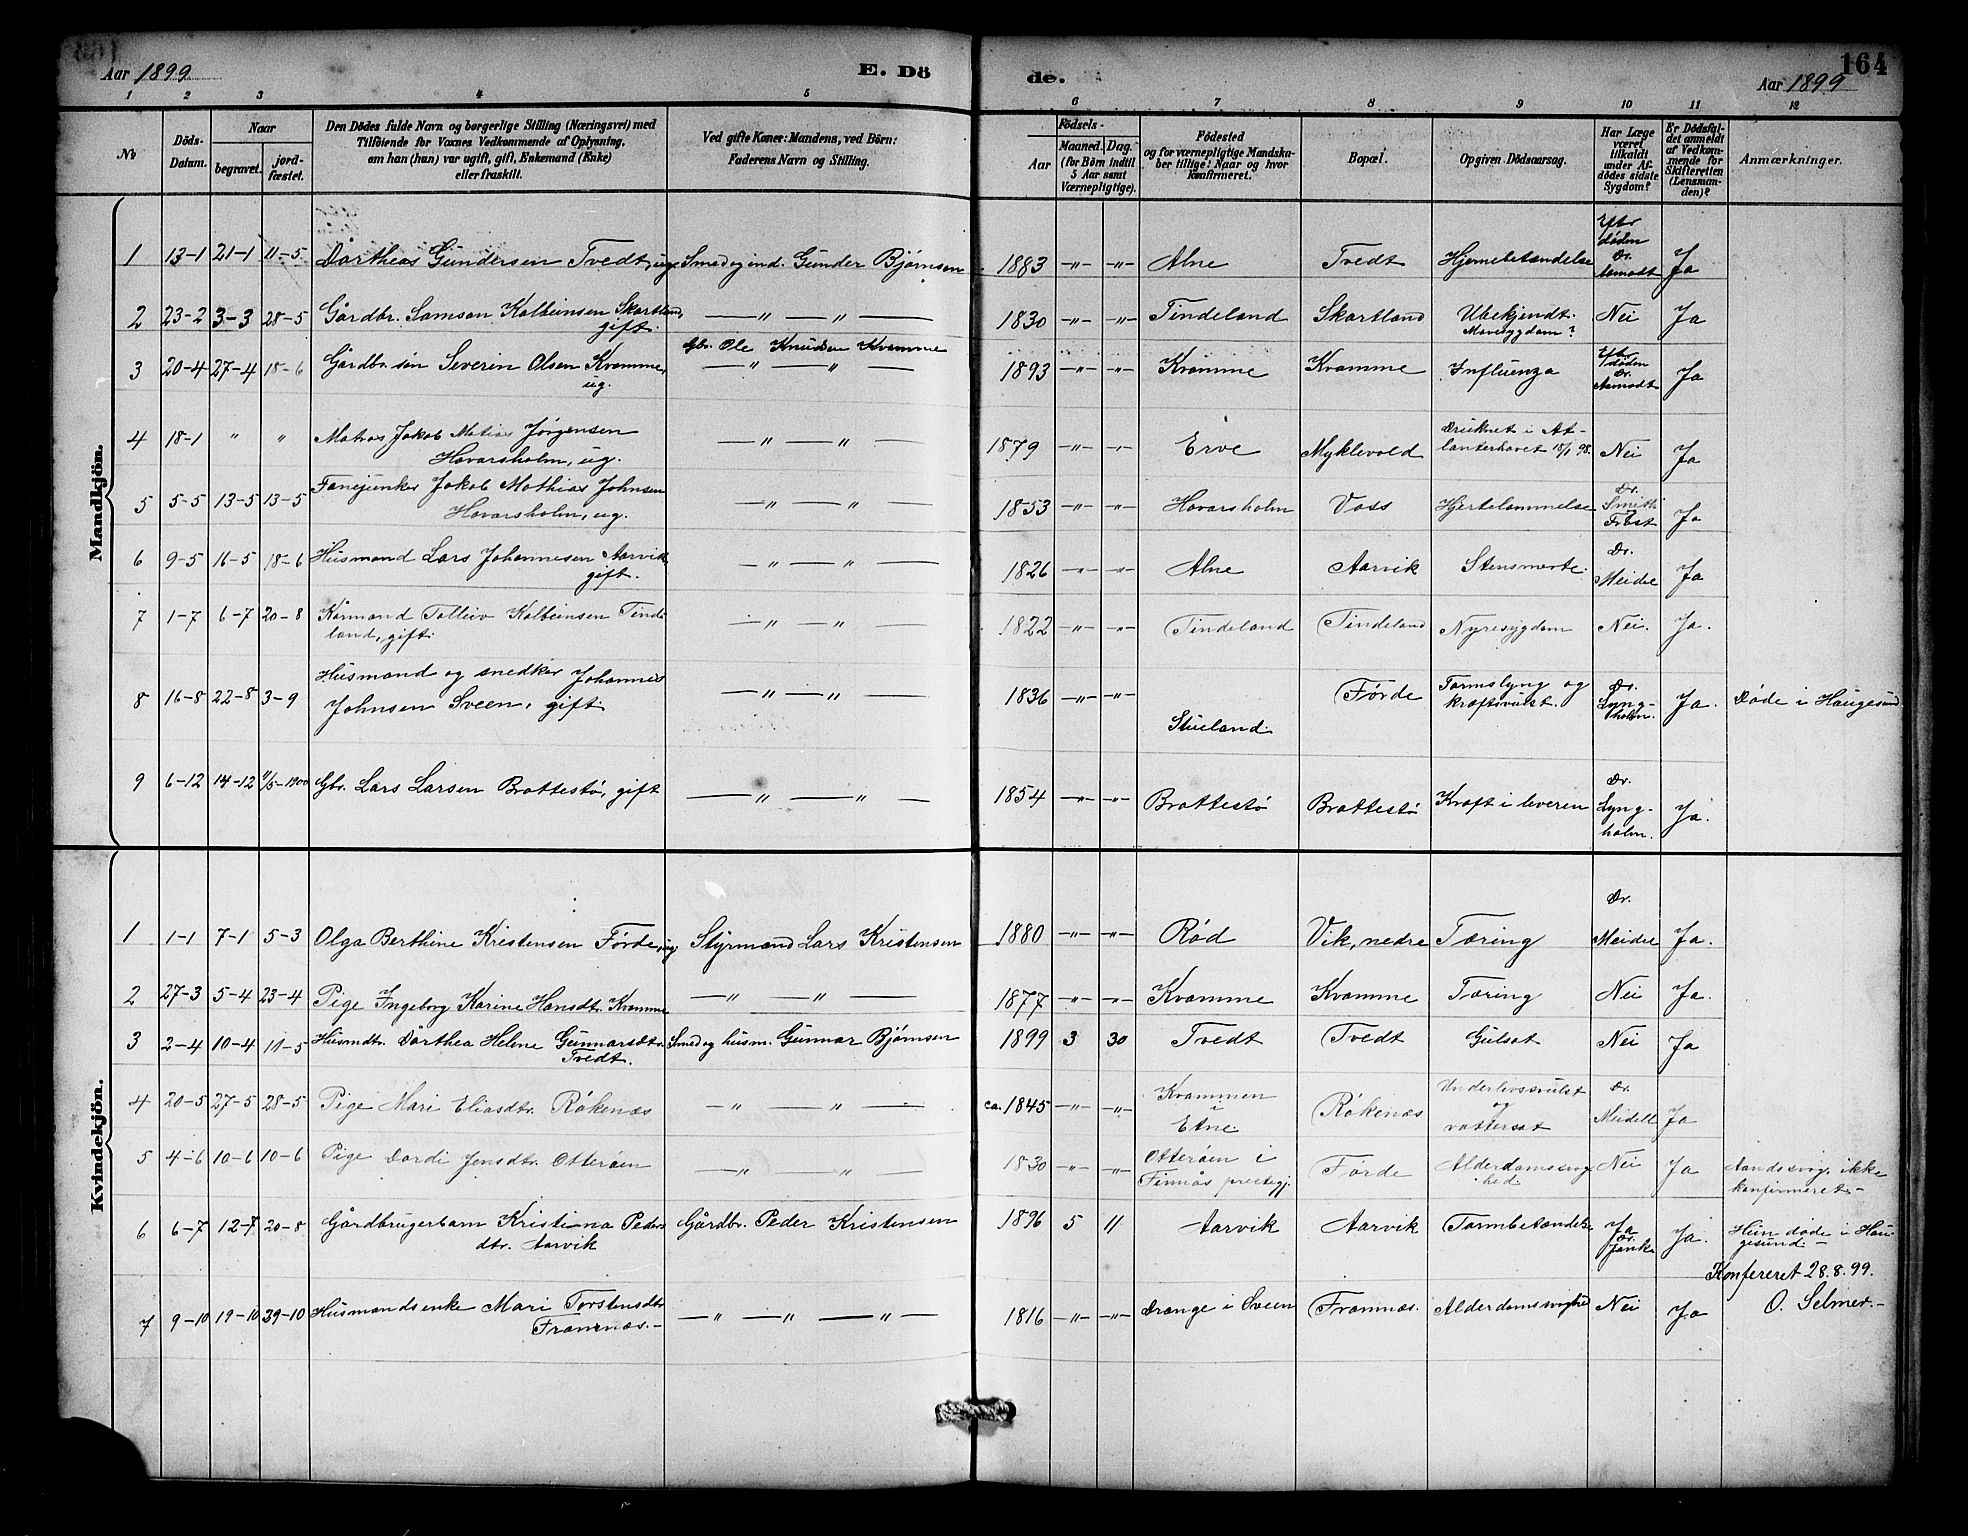 Aar 1899
E. Dö
de.
Aar 1899
164
1 2 3 4 5 6 7 8 9 10 11 12
No
Döds-Datum.
Naar
begravet.
jord-fæstet.
Den Dödes fulde Navn og borgerlige Stilling (Næringsvei) med
Tilföiende for Voxnes Vedkommende af Oplysning,
om han (hun) var ugift, gift, Enkemand (Enke)
eller fraskilt.
Ved gifte Koner: Mandens, ved Börn:
Faderens Navn og Stilling.
Födsels-
Aar
Maaned. Dag.
(for Börn indtil
5 Aar samt
Værnepligtige).
Födested
og for værnepligtige Mandska-
ber tillige: Naar og hvor
konfirmeret.
Bopæl.
Opgiven Dödsaarsag.
Har Læge
været
tilkaldt
under Af-
dödes sidste
Sygdom?
Er Dödsfal-
det anmeldt
af Vedkom-
mende for
Skifteretten
(Lensman-
den)?
Anmærkninger.
Mandkjön.
1 13-1 21-1 11-5 Dortheas Gundersen Tvedt, ug. Smed og ind. Gunder Bjørnsen 1883 -"- -"- Ølne Tvedt Hjernebetændelse Efter døden Dr. Aamodt Ja
2 23-2 3-3 28-5 Gårdbr. Samson Kolbeinsen Skartland, gift. — " — " — 1830 -"- -"- Tindeland Skartland Ubekjendt. Mavesygdom? Nei Ja
3 20-4 27-4 18-6 Gårdbr. søn Severin Olsen Kvamme, ug. Gbr. Ole Knudsen Kvamme — " — " — 1893 -"- -"- Kvamme Kvamme Influenza Efter døden Dr. Aamodt Ja
4 18-1 " " Matros Jakob Matias Jørgensen Hovarsholm, ug. — " — " — 1879 -"- -"- Erve Myklevold Druknet i At-lanterhavet 18/1 98. Nei Ja
5 5-5 13-5 13-5 Fanejunker Jakob Mathias Johnsen Hovarsholm, ug. — " — " — 1853 -"- -"- Hovarsholm Voss Hjertelammelse Dr. Smith Ja
6 9-5 16-5 18-6 Husmand Lars Johannesen Aarvik, gift. — " — " — 1826 -"- -"- Ølne Aarvik Stensmerte. Dr. Meidel Ja
7 1-7 6-7 20-8 Kårmand Tolleiv Kolbeinsen Tinde-land, gift. — " — " — 1822 -"- -"- Tindeland Tindeland Nyresygdom Nei. Ja.
8 16-8 22-8 3-9 Husmand og snedker Johannes Johnsen Sveen, gift. — " — " — 1836 -"- -"- Stueland. Førde Tarmslyng og kræftsvulst. Dr. Lyng-holm. Ja. Døde i Haugesund
9 6-12 14-12 11/5-1900 Gbr. Lars Larsen Brattestø, gift — " — " — 1854 -"- -"- Brattestø Brattestø Kræft i leveren Dr. Lyng-holm. Ja.
Kvindekjön.
1 1-1 7-1 5-3 Olga Berthine Kristensen Førde, ug. Styrmand Lars Kristensen 1880 -"- -"- Rød Vik, nedre Tæring Dr. Meidel Ja.
2 27-3 5-4 23-4 Pige Ingeborg Karine Hansdt. Kvamme — " — " — 1877 -"- -"- Kvamme Kvamme Tæring Nei Ja.
3 2-4 10-4 11-5 Husmdtr. Dorthea Helene Gunnarsdtr. Tvedt. Smed og husm. Gunnar Bjørnsen 1899 3 30 Tvedt Tvedt Gulsot Nei Ja
4 20-5 27-5 28-5 Pige Mari Eliasdtr. Røkenæs — " — " — ca. 1845 -"- -"- Kvammen i Etne. Røkenæs Underlivssvulst og vattersot Dr. Meidell Ja
5 4-6 10-6 10-6 Pige Dordi Jensdtr. Otterøen — " — " — 1830 -"- -"- Otterøen i Finnås prestegj. Førde Alderdomssvag hed. Nei Ja Aandssvag, ikke konfirmeret.-
6 6-7 12-7 20-8 Gårdbrugerbarn Kristiana Peders-dtr. Aarvik Gårdbr. Peder Kristensen 1896 5 11 Aarvik Aarvik Tarmbetændelse Ja Dr. Janke Ja. Hun døde i Hau-gesund.-
Konfereret 28.8.99.
O. Selmer.-
7 9-10 19-10 39-10 Husmandsenke Mari Torstensdtr. Framnæs.- — " — " — " — 1816 -"- -"- Drange i Sveen Framnæs. Alderdomssvaghed Nei Ja